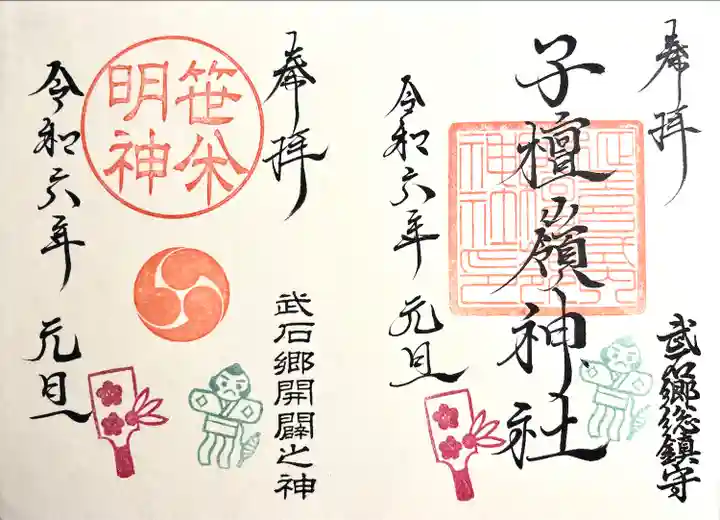 奉拝
武石郷総鎮守
子檀嶺神社
令和六年 元旦
奉拝
武石郷開闢之神
笹
明神
令和六年 元旦